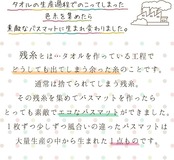 タオルの生産過程でのこってしまった
色糸を集めたら
素敵なバスマットが生まれ変わりました。
残糸とは…タオルを作っている工程で
どうしても出てしまう余った糸のことです。
通常は捨てられてしまう残糸。
その残糸を集めてバスマットを作ったら
とっても素敵でエコなバスマットができました。
1枚ずつ少しずつ風合いの違ったバスマットは
大量生産の中から生まれた1点ものです。